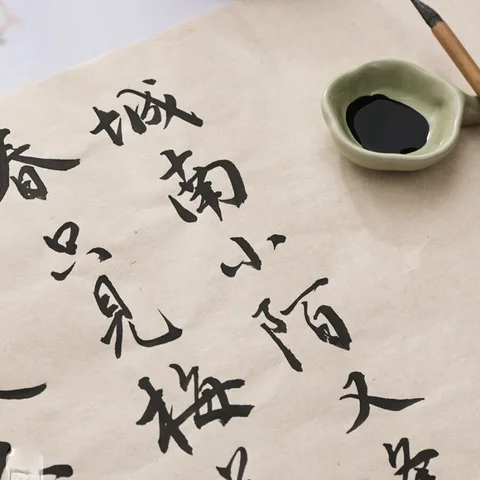 城南小陌又
春只見梅